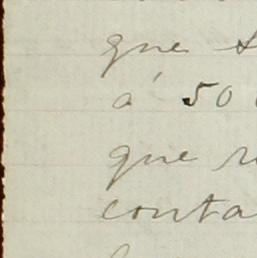 que
á 50
que
conta